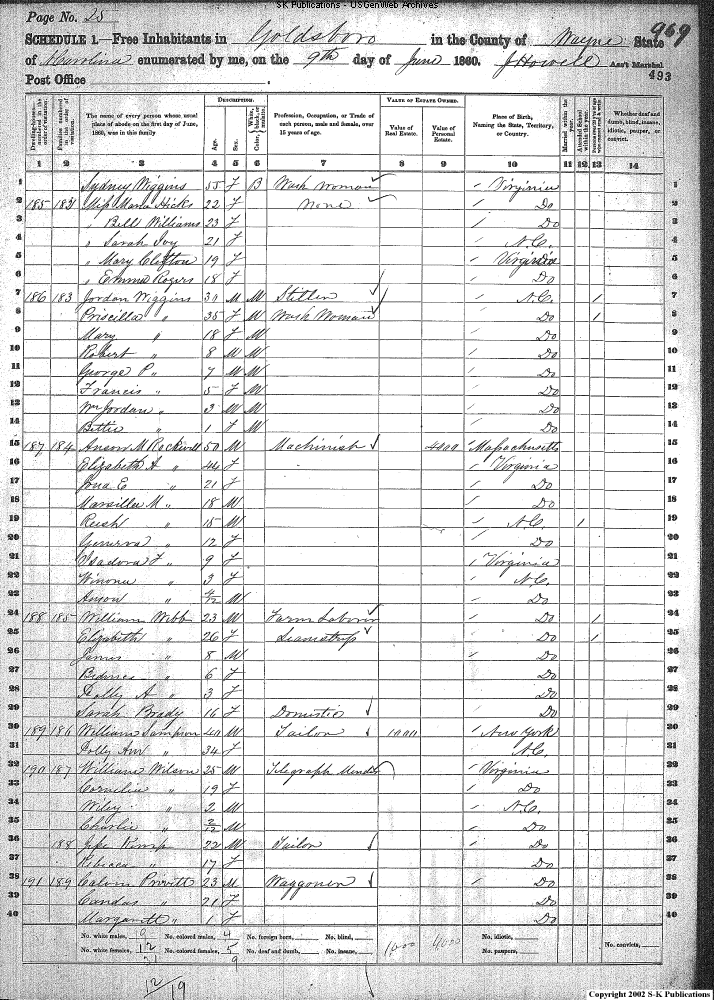 S-K Publications - USGenWeb Archives
Page No. 25
969
SCHEDULE 1.—Free Inhabitants in Goldsboro in the County of Wayne State
of N Carolina enumerated by me, on the 9th day of June 1860. J Howell Ass't Marshal
493
Post Office
Dwelling-houses numbered in the order of visitation.
Families numbered in the order of visitation.
The name of every person whose usual place of abode on the first day of June, 1860, was in this family
DESCRIPTION.
Age.
Sex.
Color,
Profession, Occupation, or Trade of each person, male and female, over 15 years of age.
VALUE OF ESTATE OWNED.
Value of Real Estate.
Value of Personal Estate.
Place of Birth, Naming the State, Territory, or Country.
Married within the year.
Attended School within the year.
Whether deaf and dumb, blind, insane, idiotic, pauper, or convict.
1 2 3 4 5 6 7 8 9 10 11 12 13 14
1 Sydney Wiggins 55 F B Wash Woman Virginia 1
2 185 Miss Maria Hicks 22 F None Do 2
3 " Bell Williams 23 F Do 3
4 " Sarah Ivy 21 F N.C. 4
5 " Mary Clifton 19 F Virginia 5
6 " Emma Rogers 18 F Do 6
7 186 183 Jordan Wiggins 30 M M N.C. 1 7
8 Priscilla " 35 F M Wash Woman Do 1 8
9 Mary " 18 F M Do 9
10 Robert " 8 M M Do 10
11 George P. " 7 M M Do 11
12 Francis " 5 F M Do 12
13 Wm Jordan " 3 M M Do 13
14 Bettie " 1 F M Do 14
15 187 184 Anson M Rockwell 50 M Machinist 4000 Massachusetts 15
16 Elizabeth A " 44 F Virginia 16
17 E " 21 F Do 17
18 M " 18 M Do 18
19 " 15 M N.C. 1 19
20 Geneva " 12 F Do 20
21 Isadora F " 9 F Virginia 21
22 Winona " 3 F N.C. 22
23 Anson " M Do 23
24 188 185 William Webb 23 M Farm Laborer Do 1 24
25 Elizabeth " 26 F Seamstress Do 1 25
26 James " 8 M Do 26
27 " 6 F Do 27
28 A " 3 F Do 28
29 Sarah Brady 16 F Domestic Do 29
30 189 186 William Sampson 40 M Tailor 1000 New York 30
31 Polly Ann " 34 F N.C. 31
32 190 187 William Wilson 25 M Telegraph Virginia 32
33 Cornelia " 19 F Do 33
34 Wiley " 2 M N.C. 34
35 Charlie " M Do 35
36 188 Kemp 22 M Tailor Do 36
37 Rebecca " 17 F Do 37
38 191 189 Calvin 23 M Waggoner Do 38
39 Candas " 21 F Do 39
40 Margarett " 1 F Do 40
No. white males, 9 No. colored males, 4 No. foreign born, No. blind, No. idiotic,
No. white females, 12 No. colored females, 5 No. deaf and dumb, No. insane, 1000 4000 No. paupers, No. convicts,
31 9
12/19
Copyright 2002 S-K Publications